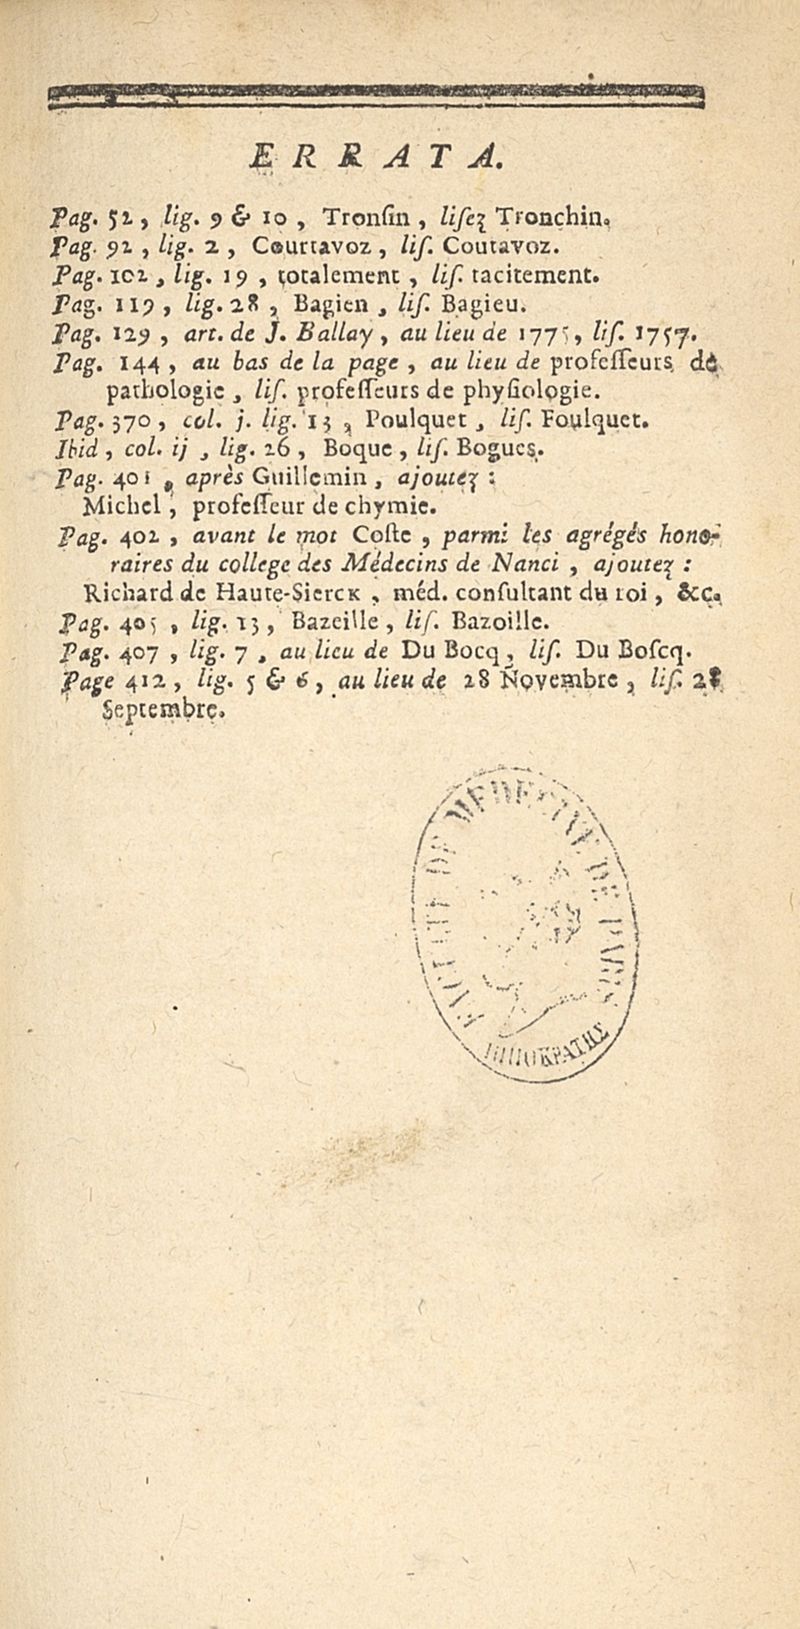 ERRATA.
Pag. 52, lig. 9 & 10, Tronſin, liſez Tronchin.
Pag. 92, lig. 2, Courtavoz, liſ. Coutavoz.
Pag. 102, lig. 19, totalement, liſ. tacitement.
Pag. 119, lig. 28, Bagien, liſ. Bagieu.
Pag. 129, art. de J. Ballay, au lieu de 1775, liſ. 1757.
Pag. 144, au bas de la page, au lieu de profeſſeurs de
pathologie, liſ. profeſſeurs de phyſiologie.
Pag. 370, col. j. lig. 13, Poulquet, liſ. Foulquet.
Ibid, col. ij, lig. 26, Boque, liſ. Bogues.
Pag. 401, après Guillemin, ajoutez:
Michel, profeſſeur de chymie.
Pag. 402, avant le mot Coſte, parmi les agrégés hono-
raires du college des Médecins de Nanci, ajoutez:
Richard de Haute-Sierck, méd. conſultant du roi, &c.
Pag. 405, lig. 13, Bazeille, liſ. Bazoille.
Pag. 407, lig. 7, au lieu de Du Bocq, liſ. Du Boſcq.
Page 412, lig. 5 & 6, au lieu de 28 Novembre, liſ. 28
Septembre.
DE MEDECINE DE PARIS